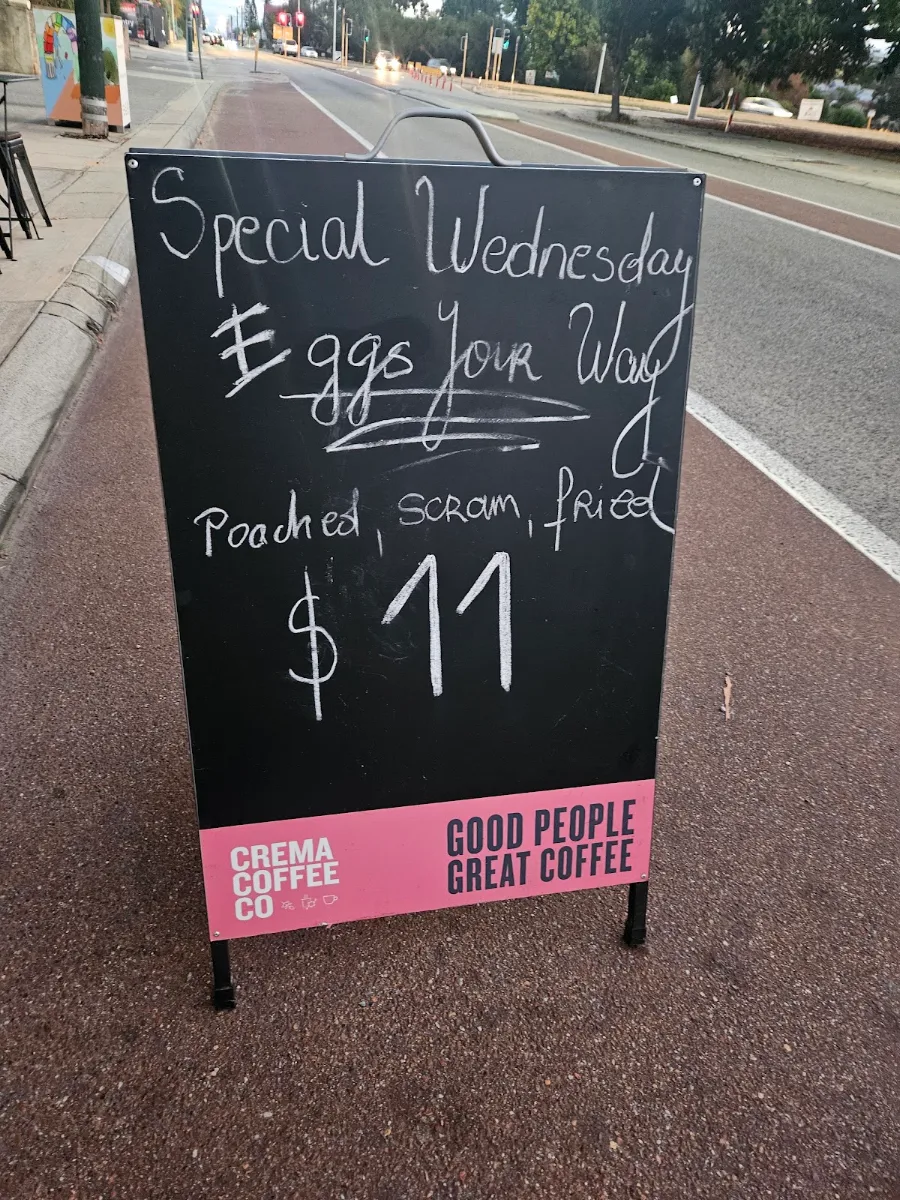 Special Wednesday
Eggs Your Way
Poached, scram, fried
$11
CREMA
COFFEE
CO
GOOD PEOPLE
GREAT COFFEE